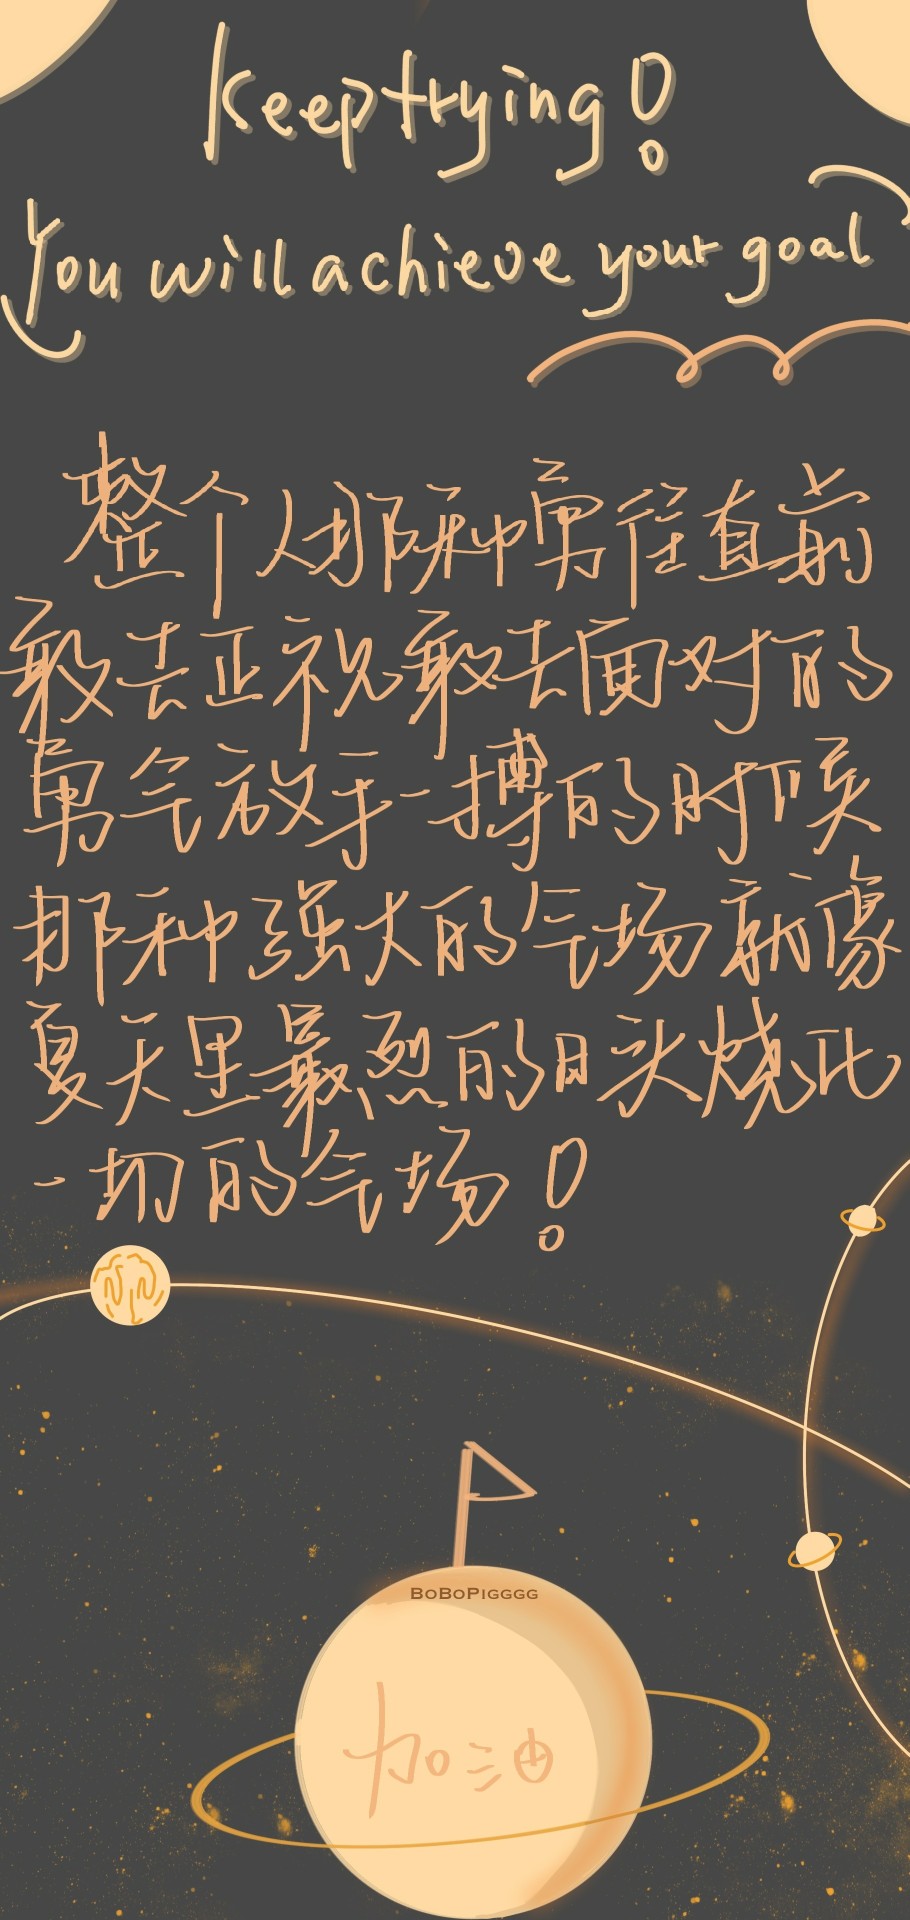 Keep trying!
You will achieve your goal
整个人那种勇往直前
敢去正视敢去面对的
勇气放手一搏的时候
那种强大的气场就像
夏天里最烈的日头烧死
一切的气场!
BoBoPigggg
加油